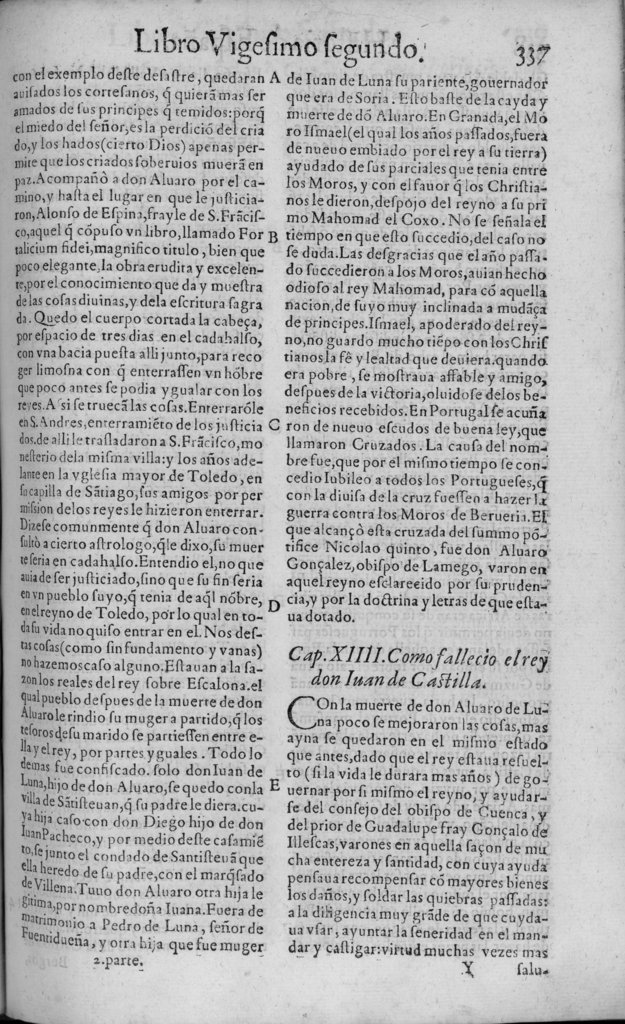 Libro Vigesimo segundo. 337
con el exemplo deste desastre, quedaran
auisados los cortesanos, q̃ quierã mas ser
amados de sus principes q̃ temidos: porq̃
el miedo del señor, es la perdiciõ del cria
do, y los hados (cierto Dios) apenas per-
mite que los criados soberuios muerã en
paz. Acompañò a don Aluaro por el ca-
mino, y hasta el lugar en que le justicia-
ron, Alonso de Espina, frayle de S. Frãcis-
co, aquel q̃ cõpuso vn libro, llamado For
talicium fidei, magnifico titulo, bien que
poco elegante, la obra erudita y excelen-
te, por el conocimiento que da y muestra
de las cosas diuinas, y dela escritura sagra
da. Quedo el cuerpo cortada la cabeça,
por espacio de tres dias en el cadahalso,
con vna bacia puesta alli junto, para reco
ger limosna con q̃ enterrassen vn hõbre
que poco antes se podia ygualar con los
reyes. A si se truecã las cosas. Enterrarõle
en S. Andres, enterramiẽto de los justicia
dos. de alli le trasladaron a S. Frãcisco, mo
nesterio dela misma villa: y los años ade-
lante en la yglesia mayor de Toledo, en
su capilla de Sãtiago, sus amigos por per
mission delos reyes le hizieron enterrar.
Dizese comunmente q̃ don Aluaro con-
sultò a cierto astrologo, q̃ le dixo, su muer
te seria en cadahalso. Entendio el, no que
auia de ser justiciado, sino que su fin seria
en vn pueblo suyo, q̃ tenia de aq̃l nõbre,
en el reyno de Toledo, por lo qual en to-
da su vida no quiso entrar en el. Nos des-
tas cosas (como sin fundamento y vanas)
no hazemos caso alguno. Estauan a la sa-
zon los reales del rey sobre Escalona. el
qual pueblo despues de la muerte de don
Aluaro le rindio su muger a partido, q̃ los
tesoros de su marido se partiessen entre e-
lla y el rey, por partes yguales. Todo lo
demas fue confiscado. solo don Iuan de
Luna, hijo de don Aluaro, se quedo con la
villa de Sãtisteuan, q̃ su padre le diera. cu-
ya hija casò con don Diego hijo de don
Iuan Pacheco, y por medio deste casamiẽ
to, se junto el condado de Santisteuã que
ella heredo de su padre, con el marq̃sado
de Villena. Tuuo don Aluaro otra hija le
gitima, por nombre doña Iuana. Fuera de
matrimonio a Pedro de Luna, señor de
Fuentidueña, y otra hija que fue muger
2. parte.
A
B
C
D
E
de Iuan de Luna su pariente, gouernador
que era de Soria. Esto baste de la cayda y
muerte de dõ Aluaro. En Granada, el Mo
ro Ismael (el qual los años passados, fuera
de nueuo embiado por el rey a su tierra)
ayudado de sus parciales que tenia entre
los Moros, y con el fauor q̃ los Christia-
nos le dieron, despojo del reyno a su pri
mo Mahomad el Coxo. No se señala el
tiempo en que esto succedio, del caso no
se duda. Las desgracias que el año passa-
do succedieron a los Moros, auian hecho
odioso al rey Mahomad, para cõ aquella
nacion, de suyo muy inclinada a mudãça
de principes. Ismael, apoderado del rey-
no, no guardo mucho tiẽpo con los Chris
tianos la fè y lealtad que deuiera. quando
era pobre, se mostraua affable y amigo,
despues de la victoria, oluidose delos be-
neficios recebidos. En Portugal se acuña
ron de nueuo escudos de buena ley, que
llamaron Cruzados. La causa del nom-
bre fue, que por el mismo tiempo se con-
cedio Iubileo a todos los Portugueses, q̃
con la diuisa de la cruz fuessen a hazer la
guerra contra los Moros de Berueria. El
que alcançò esta cruzada del summo põ-
tifice Nicolao quinto, fue don Aluaro
Gonçalez, obispo de Lamego, varon en
aquel reyno esclarecido por su pruden-
cia, y por la doctrina y letras de que esta-
ua dotado.
Cap. XIIII. Como fallecio el rey
don Iuan de Castilla.
COn la muerte de don Aluaro de Lu-
na poco se mejoraron las cosas, mas
ayna se quedaron en el mismo estado
que antes, dado que el rey estaua resuel-
to (si la vida le durara mas años) de go-
uernar por si mismo el reyno, y ayudar-
se del consejo del obispo de Cuenca, y
del prior de Guadalupe fray Gonçalo de
Illescas, varones en aquella saçon de mu
cha entereza y santidad, con cuya ayuda
pensaua recompensar cõ mayores bienes
los daños, y soldar las quiebras passadas:
a la diligencia muy grãde de que cuyda-
ua vsar, ayuntar la seneridad en el man-
dar y castigar: virtud muchas vezes mas
Y salu-